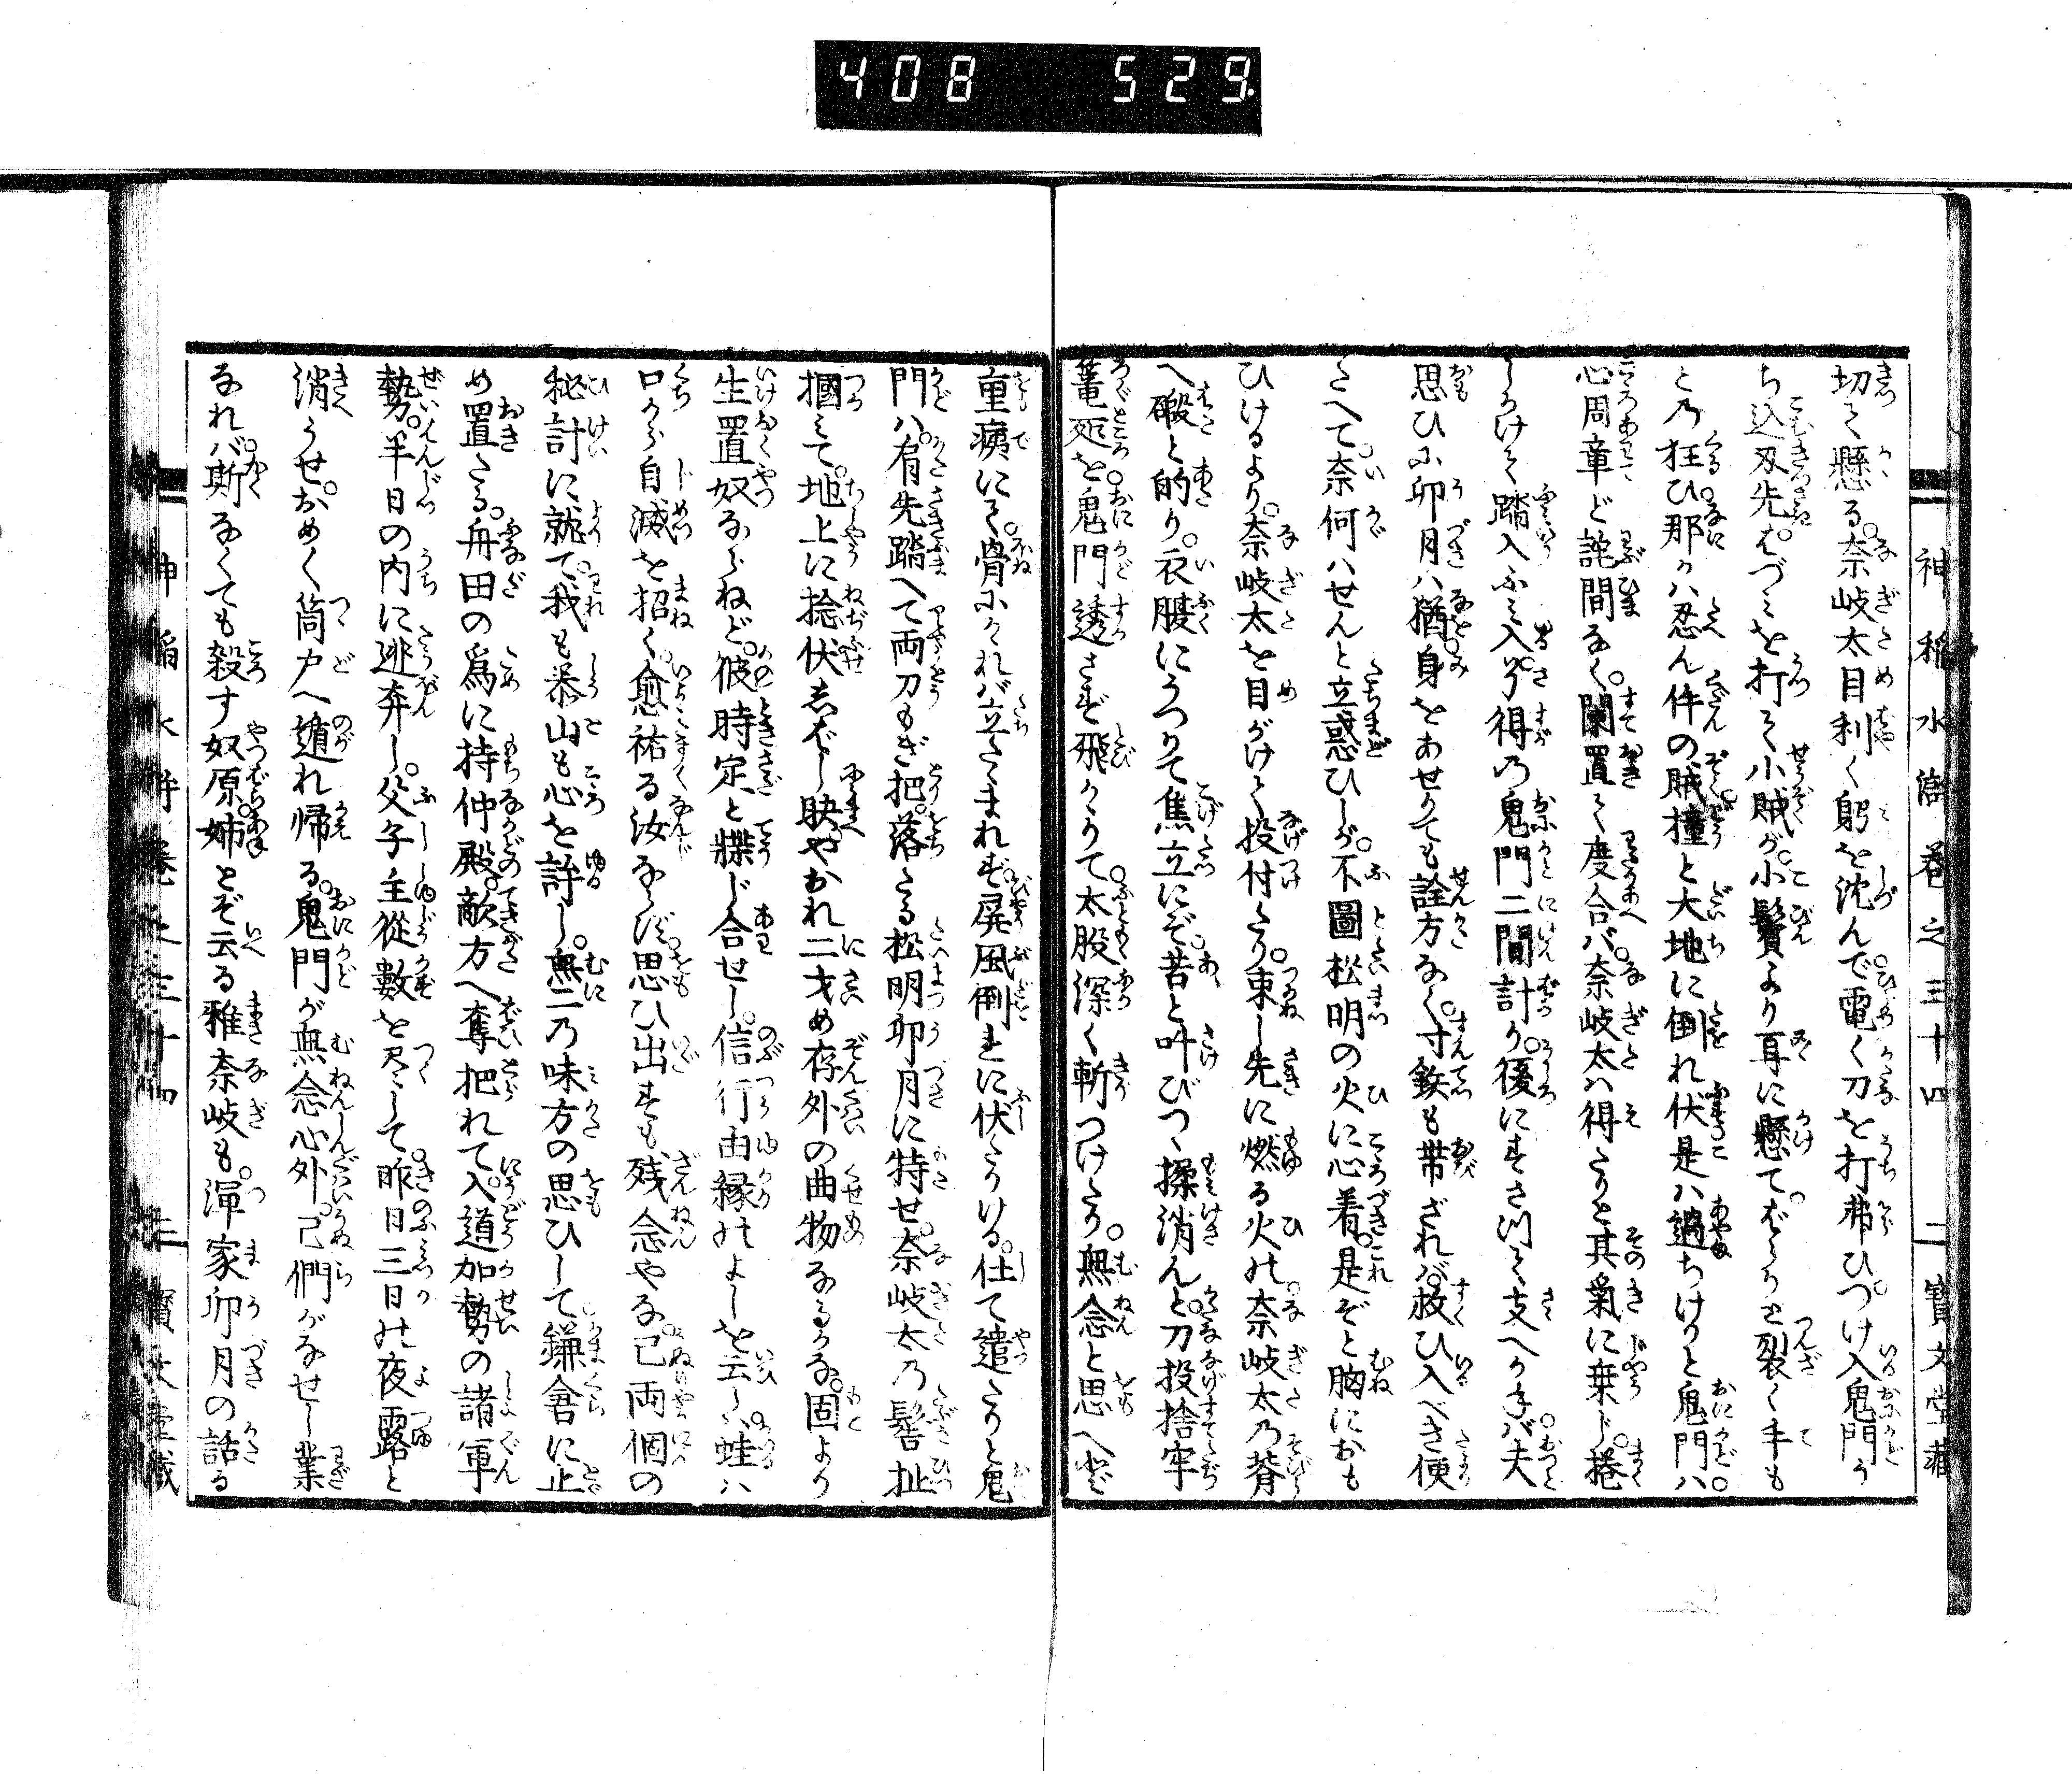 408 529.
神稲水滸巻之三十四 二 寶文堂藏
切て懸る。奈岐太目利く躬を沈んで。電く刀を打弗ひ。つけ入鬼門う
ち込刃先。はづミを打て小賊が。小鬢より耳に懸て。ばらりと裂く手も
との狂ひ那かハ忍ん件の賊撞と大地に倒れ伏是ハ過ちけりと鬼門ハ。
心周章ど詫間なく。闌置て度合バ。奈岐太ハ得たりと其氣に乗じ。捲
しかけて踏入ふミ入。得の鬼門二間計り。後にすさつて支へかねバ夫
思ひふ卯月ハ猶身をあせりても詮方なく。寸鉄も帯ざれバ。救ひ入べき便
さへて。奈何ハせんと立惑ひしが。不圖松明の火に心着。是ぞと胸におも
ひけるより。奈岐太を目がけて投付たり。束し先に燃る火の。奈岐太の脊
へ礑と的り。衣服にうつりて焦立にぞ。苦と叫びつゝ揉消んと。刀投捨牢
篭延を。鬼門透さず飛かゝりて。太股深く斬つけたり。無念と思へ共
重痍にて。骨にかれバ立たまれず。屏風倒しに伏たりける。仕て遣たりと鬼
門ハ。肩先踏へて両刀もぎ把。落たる松明卯月に持せ。奈岐太の髻扯
摑ミて。地上に捻伏志バし睨やおれ二才め存外の曲物なるかな。固より
生置奴ならねど。彼時定と牒じ合せし。信行由縁のよしを云しハ。蛙ハ
口から自滅を招く。愈祐る汝ならず思ひ出すも。残念やな。己両個の
秘計に就て。我も泰山も心を許し。無二の味方の思ひして。鎌倉に止
め置たる。舟田の為に持仲殿。敵方へ奪把れて。入道加勢の諸軍
勢。半日の内に逃奔し。父子主從數を尽して。昨日三日の夜露と
消うせ。おめく筒戸へ遁れ帰る。鬼門が無念心外。己們がなせし業
なれバ。斯なくても殺す奴原。姉とぞ云る雅奈岐も。渾家卯月の話る